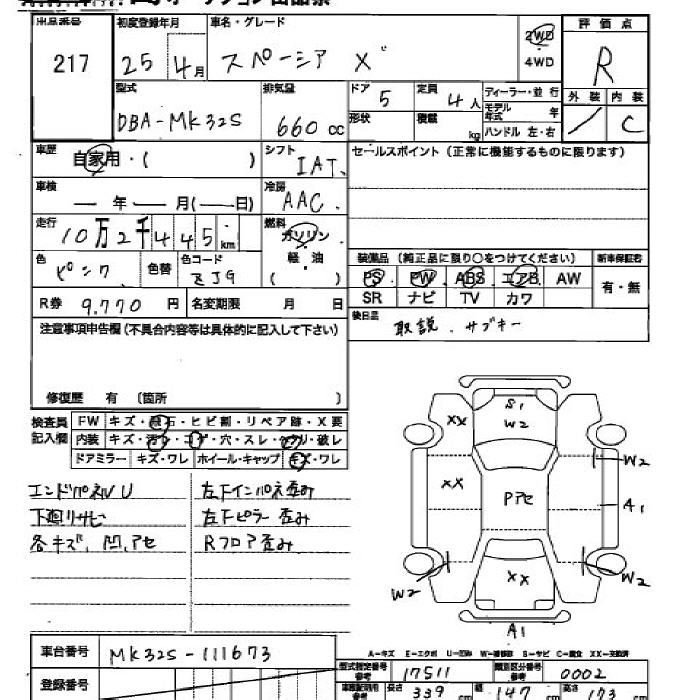 出品番号 初度登録年月 車名・グレード 評価点
217 25年4月 スペーシア X 2WD R
4WD
型式 排気量 ドア 5 定員 4人 ディーラー・並行 外装 内装
モデル年式 年
DBA-MK32S 660cc 形状 積載 kg ハンドル 左・右 / C
車歴 自家用・( ) シフト IAT. セールスポイント（正常に機能するものに限ります）
車検 — 年 — 月(— 日) 冷房 AAC.
走行 10万2千445km 燃料 ガソリン
軽油
( )
色 ピンク 色替 色コード ZJ9 装備品 (純正品に限り○をつけてください) 新車保証書
PS PW ABS エアB AW 有・無
R券 9.770円 名変期限 月 日 SR ナビ TV カワ
注意事項申告欄(不具合内容等は具体的に記入して下さい) 後日品 取説. サブキー
修復歴 有 〔箇所 〕
検査員記入欄 FW キズ・飛石・ヒビ割・リペア跡・X要
内装 キズ・汚レ・コゲ・穴・スレ・・破レ
ドアミラー キズ・ワレ ホイール・キャップ キズ・ワレ
エンドパネルU 左下インパネ歪み
下廻りサビ 左下ピラー歪み
各キズ、凹、アセ Rフロア歪み
S1
XX W2
W2
XX Pアセ A1
W2 XX W2
A1
A-キズ E-エクボ U-凹み W-補修跡 S-サビ C-腐食 XX-交換済
車台番号 MK32S-111673
型式指定番号 参考 17511 類別区分番号 参考 0002
登録番号 長さ 339cm 幅 147cm 高さ 173cm